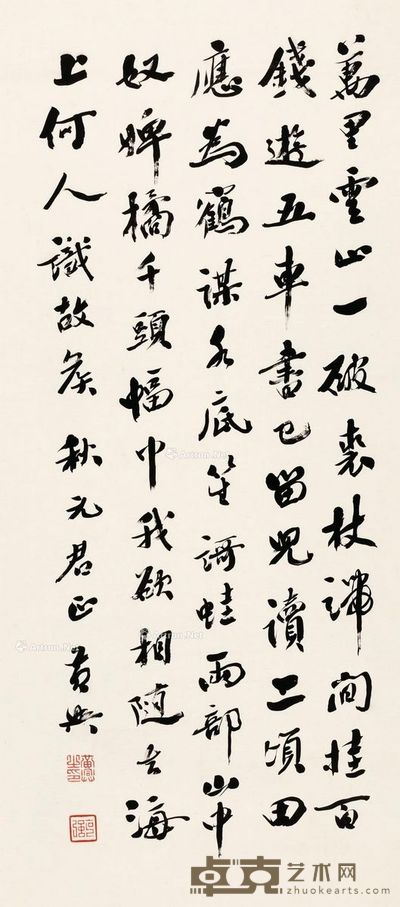 萬里雲山一破裘杖端閒挂百
錢遊五車書已留兒讀二頃田
應為鶴謀水底笙謌蛙兩部山中
奴婢橘千頭幅巾我欲相隨去海
上何人識故侯 秋元君正 黃興
黃興之印
克強
Artron.Net
Artron.Net
Artron.Net
卓克艺术网
zhuokearts.com